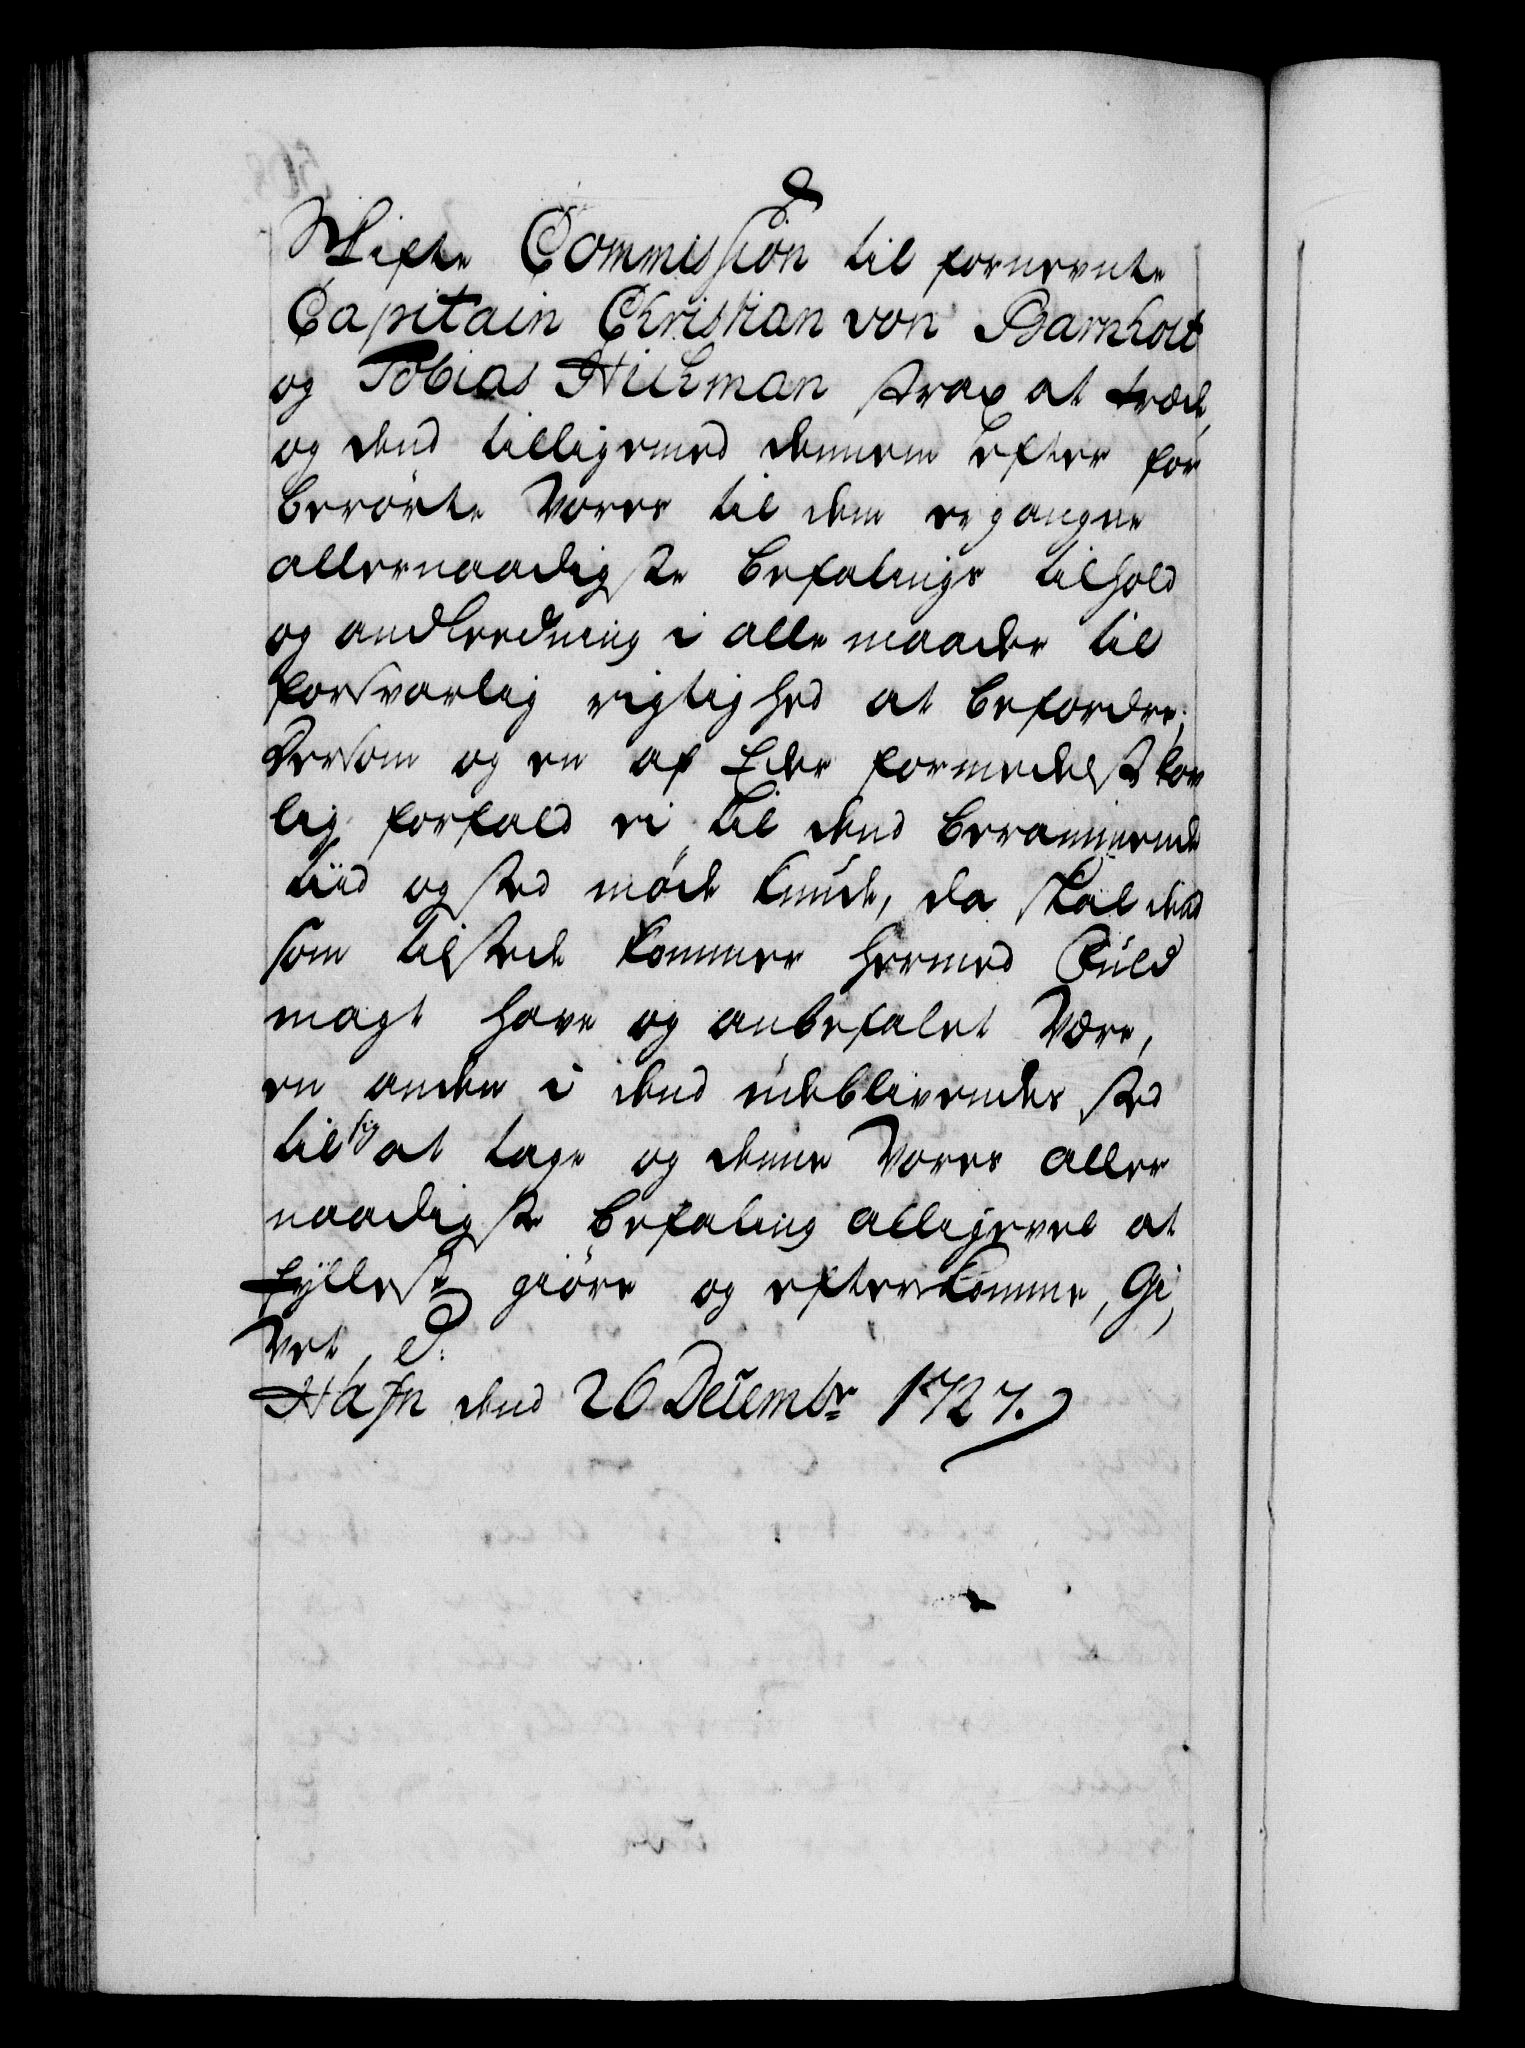 skifte Commission til fornevnte
Capitain Christian von Barnholt
og Tobias Hickman strax at træde,
og dend tilligemed dennem efter for
berörte Vores til dem ergangne
allernaadigste befalings tilhold
og andleedning i alle maader til
forsvarlig rigtighed at befordre;
Dersom og en af Eder formedelst lov
lig forfald ei til dend berammede
tiid og sted møde kunde, da skal dend
som tilstede kommer hermed Fuld
magt have og anbefalet Være,
en anden i dend udeblivendes sted
til sig at tage og denne Vores aller
naadigste befaling alligevel at
fyllest giöre og efterkomme, Gi,
Vet,
Hafn dend 26 Decembr 1727.